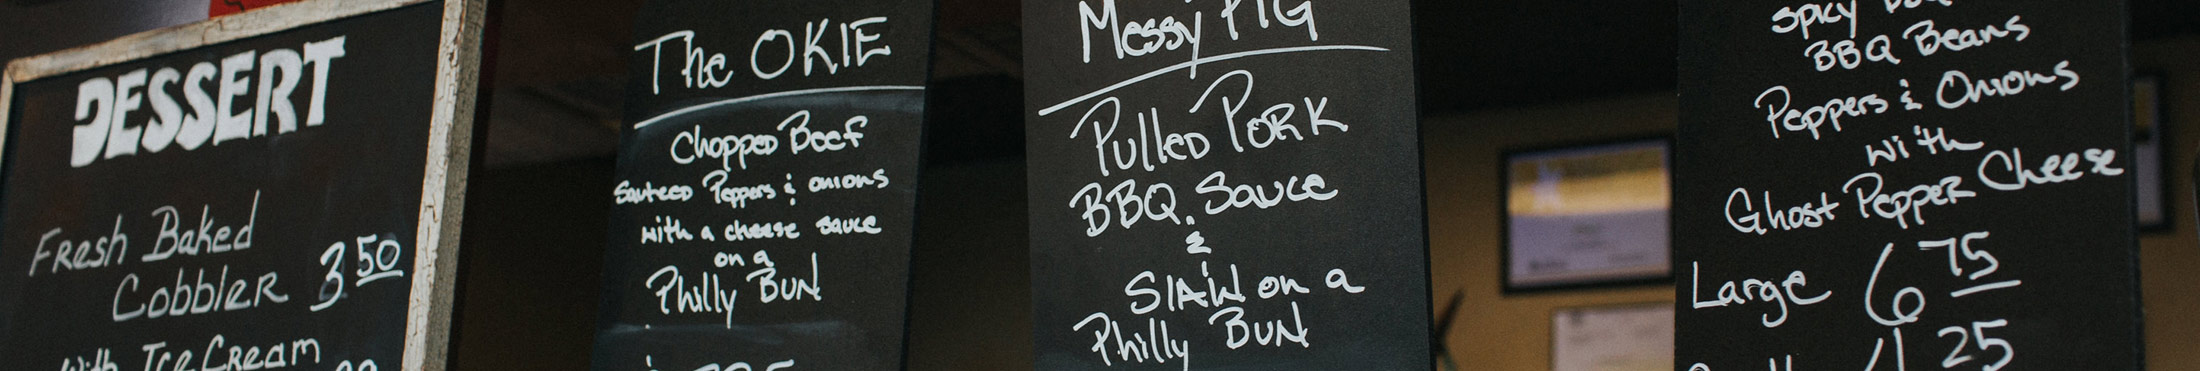 DESSERT
Fresh Baked
Cobbler 3 50
With Ice Cream
The OKIE
Chopped Beef
Sauteed Peppers & onions
with a cheese sauce
on a
Philly Bun
Messy PIG
Pulled Pork
BBQ Sauce
&
Slaw on a
Philly Bun
Spicy
BBQ Beans
Peppers & Onions
with
Ghost Pepper Cheese
Large 6 75
25